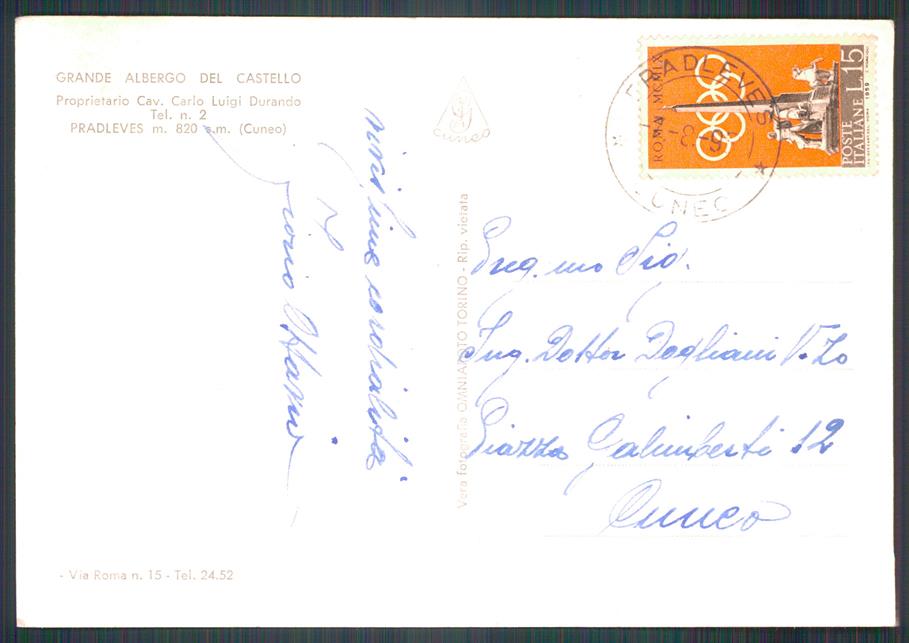 GRANDE ALBERGO DEL CASTELLO
Proprietario Cav. Carlo Luigi Durando
Tel. n. 2
PRADLEVES m. 820 s.m. (Cuneo)
Cuneo
vivissime cordialità
Vera fotografia OMNIAFOTO TORINO - Rip. vietata
PRADLEVES
CUNEO
ROMA MCMLX
POSTE
ITALIANE L. 15
1959
Preg.mo Sig.
Ing. Dottor Dogliani V.zo
Piazza Galimberti 12
Cuneo
- Via Roma n. 15 - Tel. 24.52